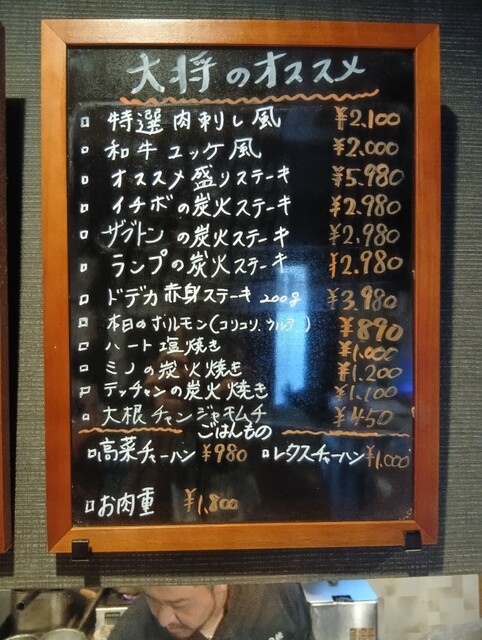 大将のオススメ
特選 肉刺し風 ¥2.100
和牛 ユッケ風 ¥2.000
オススメ盛りステーキ ¥5.980
イチボの炭火ステーキ ¥2.980
ザブトンの炭火ステーキ ¥2.980
ランプの炭火ステーキ ¥2.980
ドデカ赤身ステーキ 200g ¥3.980
本日のホルモン(コリコリ、ウルテ) ¥890
ハート塩焼き ¥1.000
ミノの炭火焼き ¥1.200
テッチャンの炭火焼き ¥1.100
大根チャンジャキムチ ¥450
ごはんもの
高菜チャーハン ¥980 レタスチャーハン ¥1.000
お肉重 ¥1.800